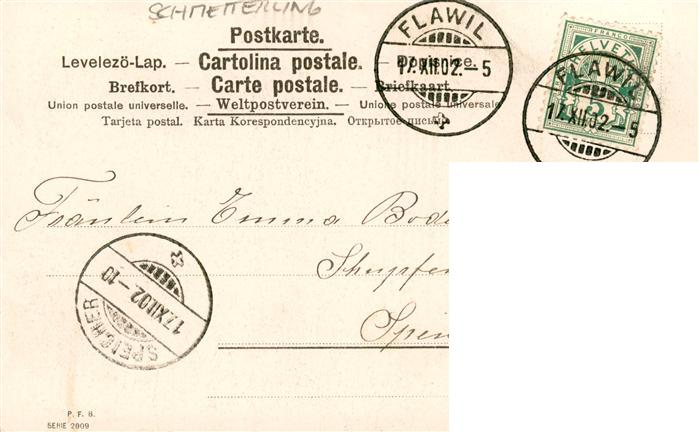 SCHMETTERLING
Postkarte.
Levelezö-Lap. — Cartolina postale. —
Brefkort. — Carte postale. — Briefkaart.
Union postale universelle. — Weltpostverein. — Union postale universale
Tarjeta postal. Karta Korespondencyjna. Открытое письмо
FLAWIL
17.XII.02.–5
FRANCO
HELVETIA
FLAWIL
17.XII.02.–5
Fräulein Emma
SPEICHER
17.XII.02.–10
P. F. B.
SERIE 2009